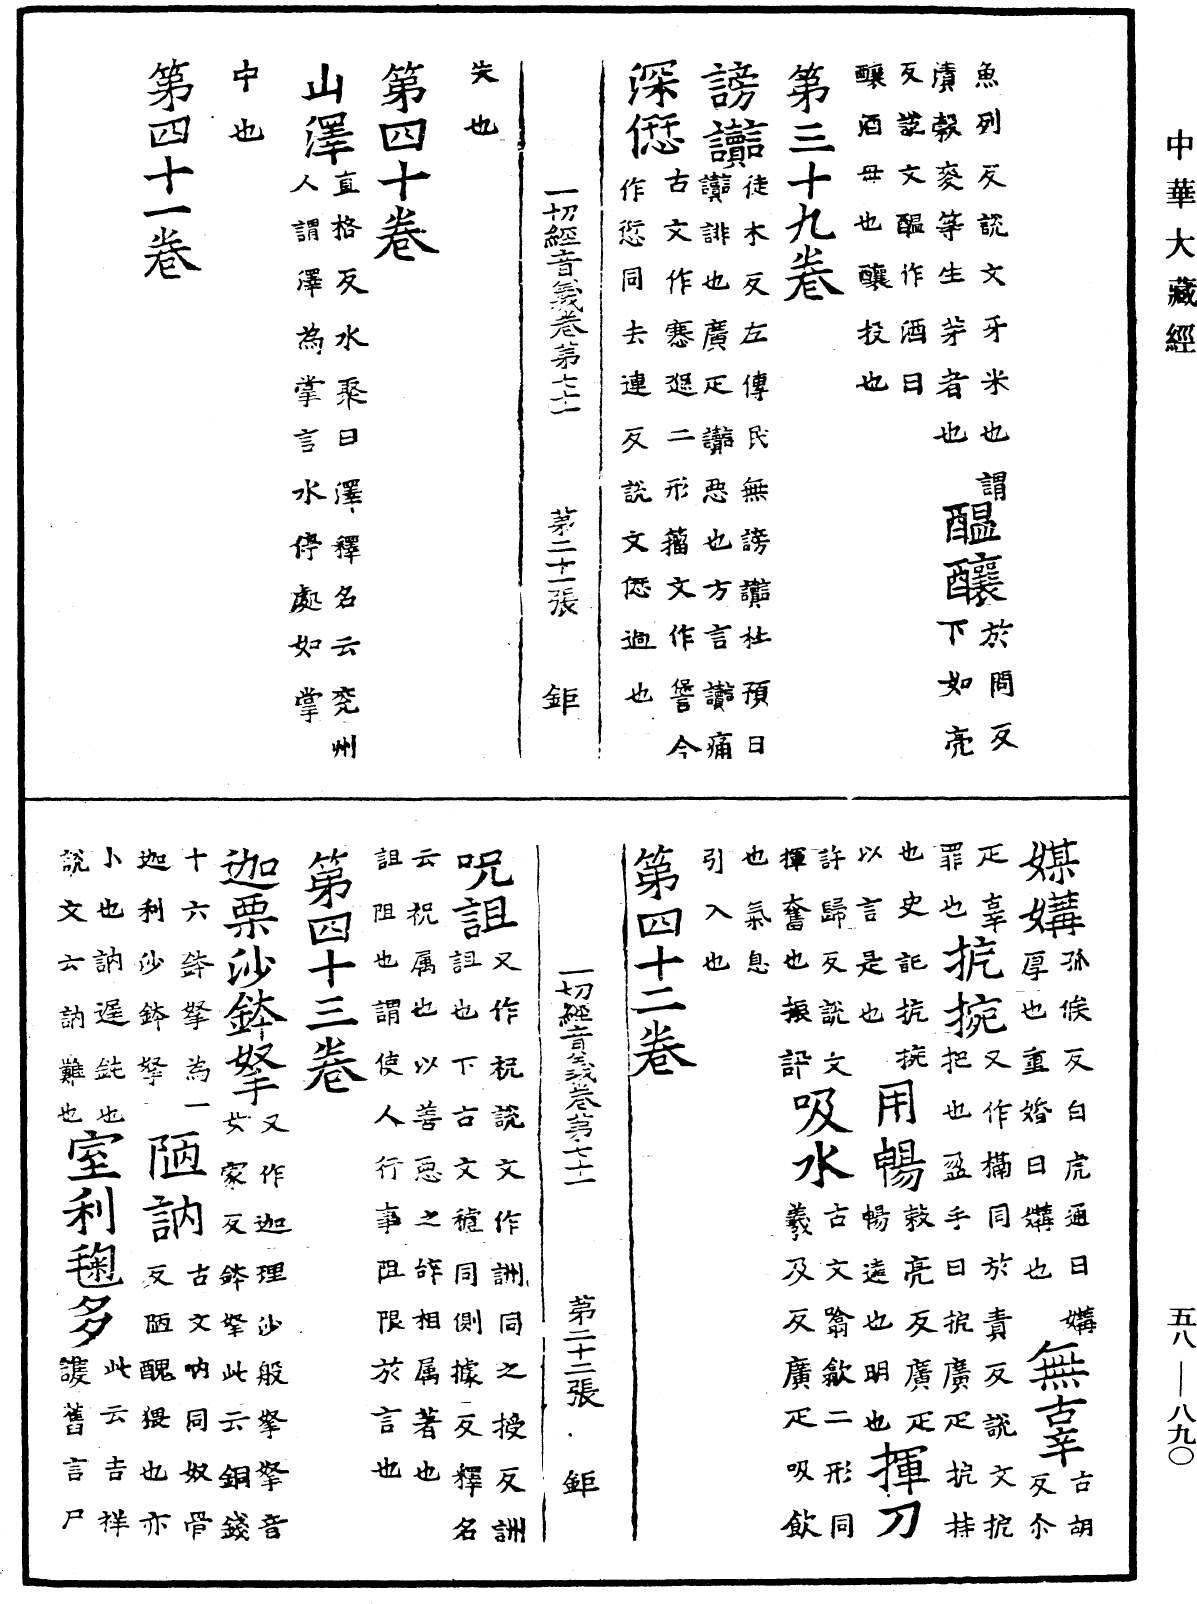 中華大藏經
魚列反說文牙米也謂
漬穀麥等生芽者也
醖釀於問反
下如亮
反說文醖作酒曰
釀酒母也釀投也
第三十九卷
謗讟徒木反左傳民無謗讟杜預曰
讟誹也廣疋讟惡也方言讟痛
深𠍴古文作愆𠎝二形籀文作諐今
作愆同去連反說文𠍴過也
一切經音義卷第七十一　第二十一張　鉅
失也
第四十卷
山澤直格反水聚曰澤釋名云兖州
人謂澤為掌言水停處如掌
中也
第四十一卷
媒媾孤候反白虎通曰媾
厚也重婚曰媾也
無辜古胡反尒
疋辜
罪也
抗捥又作搹同於責反說文抗
把也盈手曰抗廣疋抗持
也史記抗捥
以言是也
用暢敕亮反廣疋
暢遠也明也
揮刀
許歸反說文
揮奮也振訊
也氣息
吸水古文噏歙二形同
羲及反廣疋吸飲
引入也
第四十二卷
一切經音義卷第七十一　第二十二張　鉅
呪詛又作祝說文作詶同之授反詶
詛也下古文𧨟同側據反釋名
云祝属也以善惡之辝相属著也
詛阻也謂使人行事阻限於言也
第四十三卷
迦栗沙鉢拏又作迦理沙般拏拏音
女家反鉢拏此云銅錢
十六鉢拏為一
迦利沙鉢拏
陋訥古文吶同奴骨
反陋醜猥也亦
小也訥遲鈍也
說文云訥難也
室利毱多此云吉祥
護舊言尸
五八—八九〇